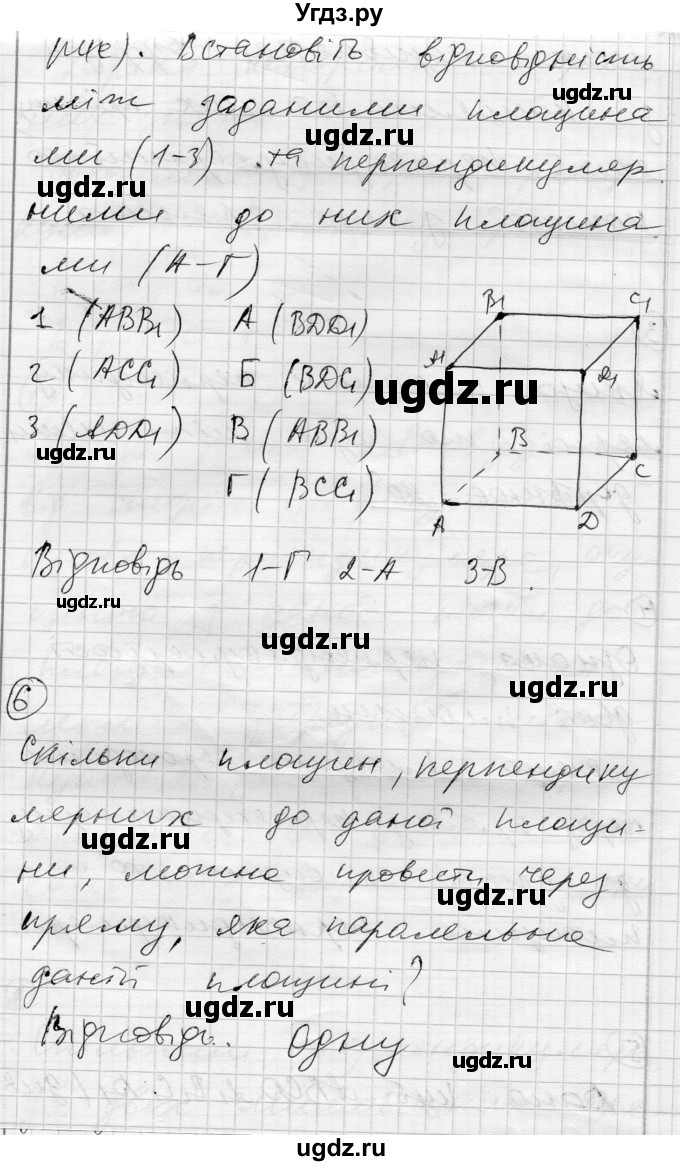 Угдз.ру
рис). Встановіть відповідність
ugdz.ru
між заданими площина
ugdz.ru
ми (1-3) та перпендикуляр
ugdz.ru
ними до них площина
ugdz.ru
ми (А-Г)
1 (ABB₁) А (BDD₁)
2 (ACC₁) Б (BDC₁)
3 (ADD₁) В (ABB₁)
Г (BCC₁)
B₁ C₁
A₁ D₁
B C
A D
ugdz.ru
ugdz.ru
ugdz.ru
Відповідь 1-Г 2-А 3-В.
ugdz.ru ugdz.ru
ugdz.ru
6
ugdz.ru
Скільки площин, перпендику
лярних до даної площи-
ugdz.ru
ни, можна провести через
ugdz.ru
пряму, яка паралельна
даній площині?
ugdz.ru
Відповідь. Одну
ugdz.ru
ugdz.ru